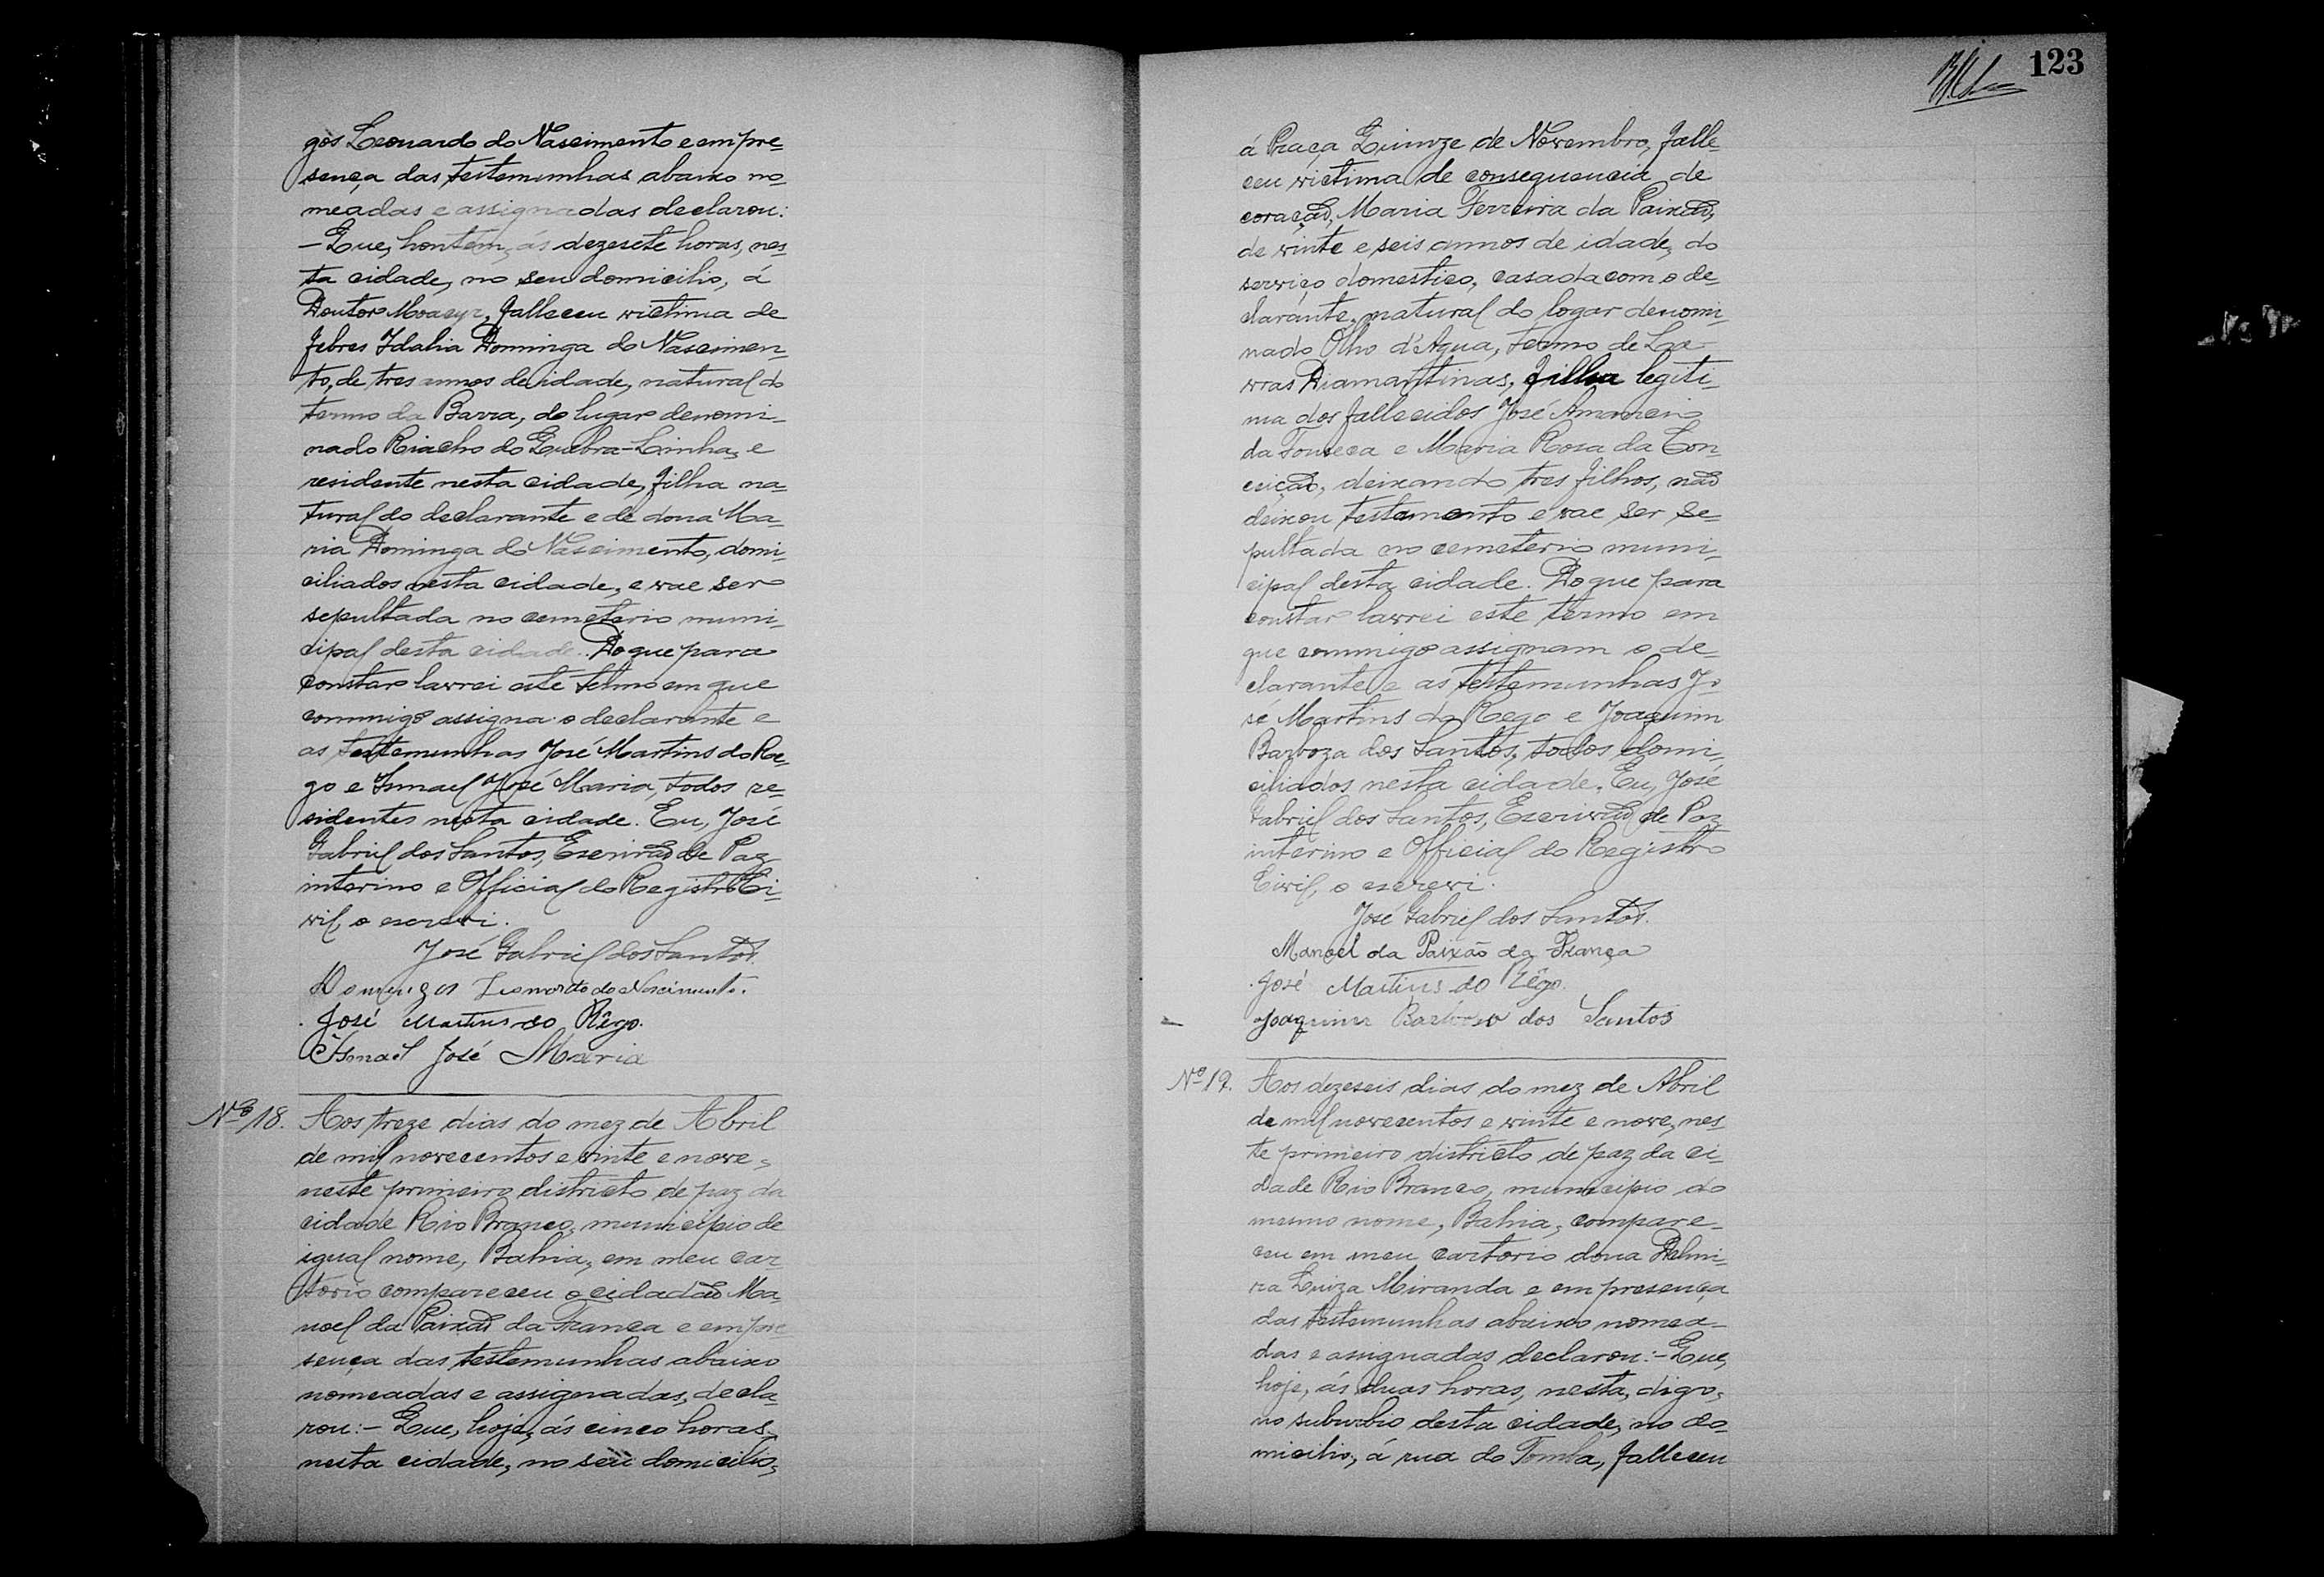 gos Leonardo do Nascimento e em pre-
sença das testemunhas abaixo no-
meadas e assignadas declarou:
- Que, hontem, ás dezesete horas, nes-
ta cidade, no seu domicilio, á
Doutor Moacyr, falleceu victima de
febres Idalia Dominga do Nascimen-
to, de tres annos de idade, natural do
termo da Barra, do lugar denomi-
nado Riacho do Quebra-Linha, e
residente nesta cidade, filha na-
tural do declarante e de dona Ma-
ria Dominga do Nascimento, domi-
ciliados nesta cidade, e vae ser
sepultada no cemeterio muni-
cipal desta cidade. Do que para
constar lavrei este termo em que
commigo assigna o declarante e
as testemunhas José Martins do Re-
go e Ismael José Maria, todos re-
sidentes nesta cidade. Eu, José
Gabriel dos Santos, Escrivão de Paz
interino e Official do Registro Ci-
vil, o escrevi.
José Gabriel dos Santos.
Domingos Leonardo do Nascimento.
José Martins do Rêgo.
Ismael José Maria
Nº 18. Aos treze dias do mez de Abril
de mil novecentos e vinte e nove,
neste primeiro districto de paz da
cidade Rio Branco, municipio de
igual nome, Bahia, em meu car-
torio compareceu o cidadão Ma-
noel da Paixão da França e em pre-
sença das testemunhas abaixo
nomeadas e assignadas, decla-
rou:- Que, hoje, ás cinco horas,
nesta cidade, no seu domicilio,
123
á Praça Quinze de Novembro, falle-
ceu victima de consequencia de
coração, Maria Ferreira da Paixão,
de vinte e seis annos de idade, do
serviço domestico, casada com o de-
clarante, natural do logar denomi-
nado Olho d'Agua, termo de La-
vras Diamantinas, filha legiti-
ma dos fallecidos José Amancio
da Fonseca e Maria Rosa da Con-
ceição, deixando tres filhos, não
deixou testamento e vae ser se-
pultada no cemeterio muni-
cipal desta cidade. Do que para
constar lavrei este termo em
que commigo assignam o de-
clarante e as testemunhas Jo-
sé Martins do Rego e Joaquim
Barboza dos Santos, todos domi-
ciliados nesta cidade. Eu, José
Gabriel dos Santos, Escrivão de Paz
interino e Official do Registro
Civil, o escrevi.
José Gabriel dos Santos.
Manoel da Paixão da França
José Martins do Rêgo.
Joaquim Barbosa dos Santos
Nº 19. Aos dezeseis dias do mez de Abril
de mil novecentos e vinte e nove, nes-
te primeiro districto de paz da ci-
dade Rio Branco, municipio do
mesmo nome, Bahia, compare-
ceu em meu cartorio dona Delmi-
ra Luiza Miranda e em presença
das testemunhas abaixo nomea-
das e assignadas declarou:- Que,
hoje, ás duas horas, nesta, digo,
no suburbio desta cidade, no do-
micilio, á rua do Tomba, falleceu